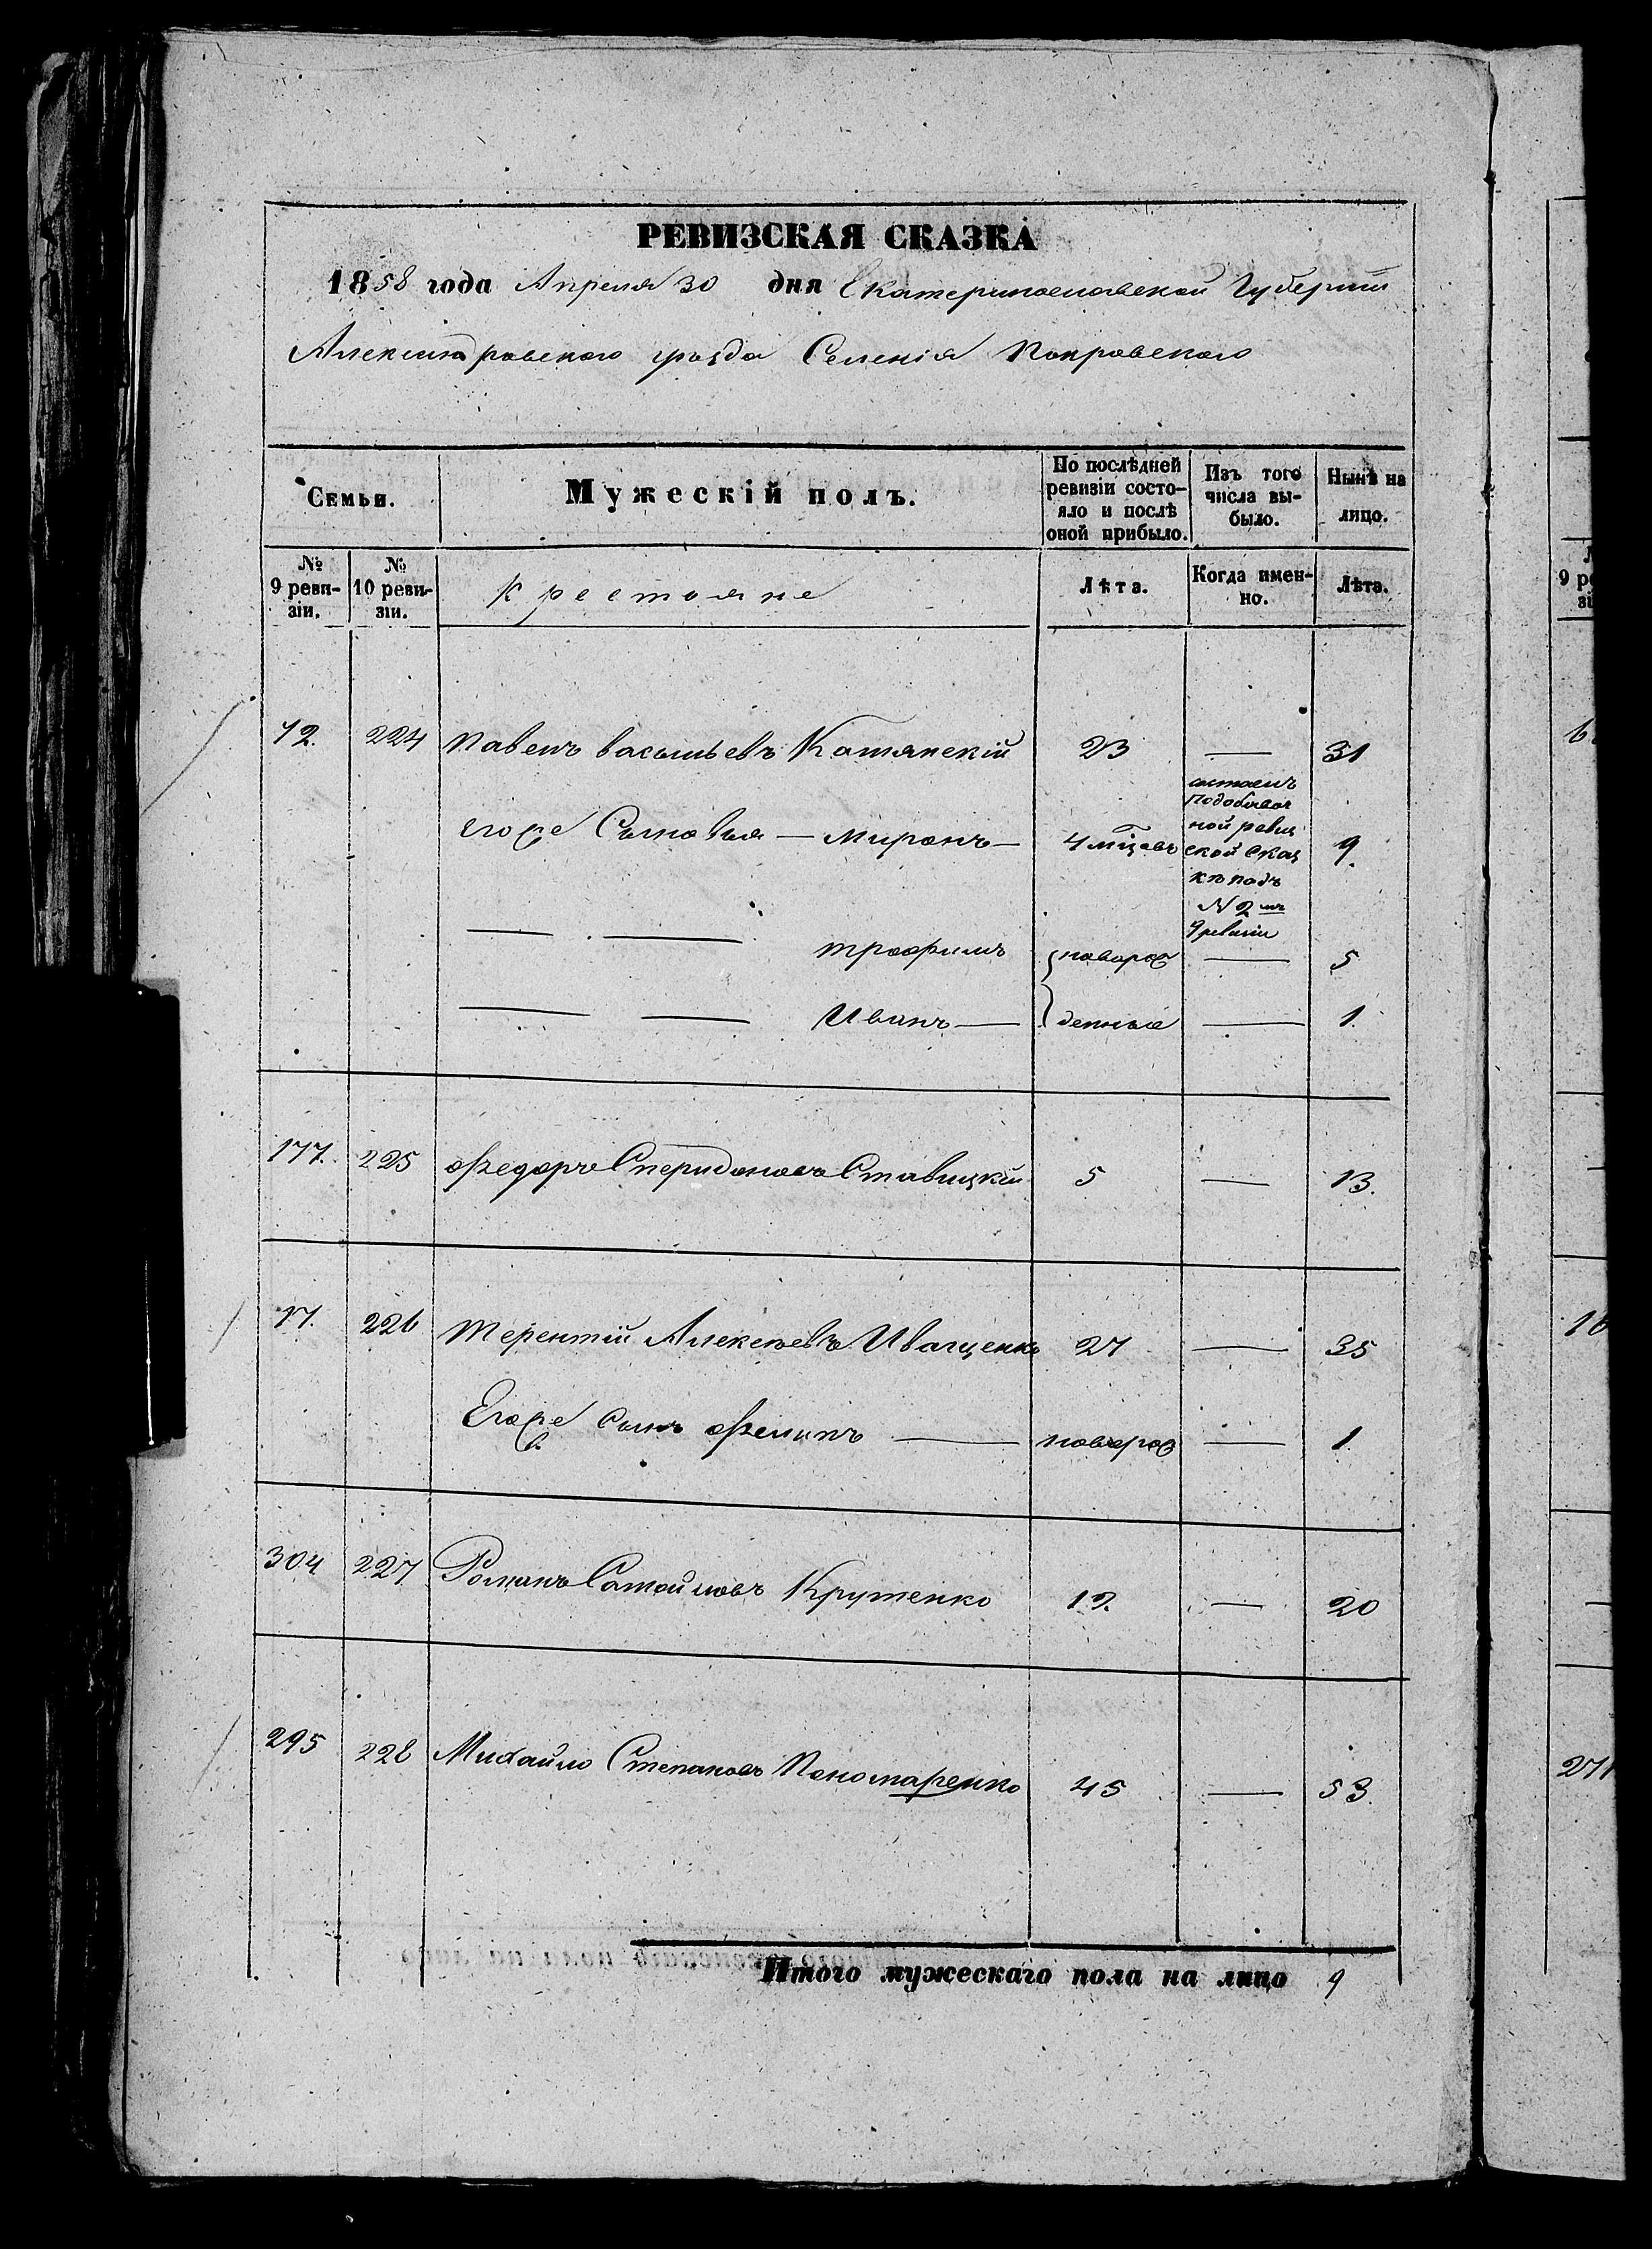 РЕВИЗСКАЯ СКАЗКА
1858 года Апреля 30 дня Екатеринославской Губернии
Александровского уезда Селенія Покровского
Семьи.
Мужескій полъ.
По послѣдней ревизіи состояло и послѣ оной прибыло.
Изъ того числа выбыло.
Нынѣ на лицо.
№ 9 ревизіи.
№ 10 ревизіи.
Крестьяне
Лѣта.
Когда именно.
Лѣта.
72. 224 Павелъ васильевъ 23 — 31
Егоже Сыновья — миронъ — 4 мѣсцовъ 9.
состоялъ
Подобавоч
ной ревиз
ской Сказ
кѣ подъ
N 2 мъ
9 ревизіи
трофимъ новорож — 5
Иванъ — денные — 1.
177. 225 Федоръ Спиридоновъ Ставицкій 5 — 13.
17. 226 терентій Алексѣевъ Иващенко 27 — 35
Егоже сынъ Филипъ — новорож — 1.
304 227 Романъ Самойловъ Крутенко 12. — 20
295 228 Михайло Степановъ Пономаренко 45 — 53.
Итого мужескаго пола на лицо 9